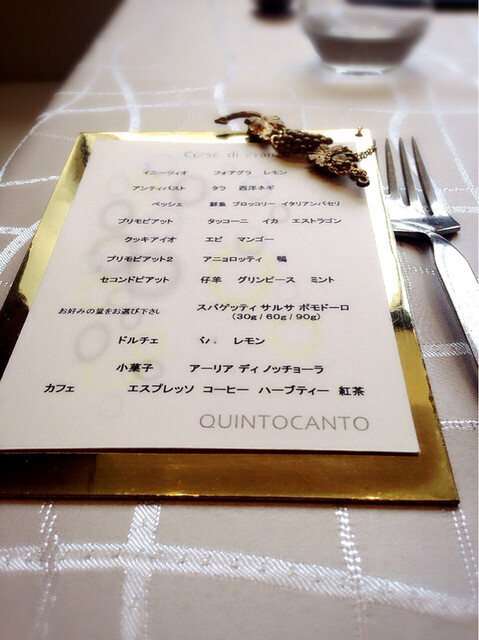 di
イニーツィオ フォアグラ レモン
アンティパスト タラ 西洋ネギ
ペッシェ 鮮魚 ブロッコリー イタリアンパセリ
プリモピアット タッコーニ イカ エストラゴン
クッキアイオ エビ マンゴー
プリモピアット2 アニョロッティ 鴨
セコンドピアット 仔羊 グリンピース ミント
お好みの量をお選び下さい スパゲッティ サルサ ポモドーロ
(30g / 60g / 90g)
ドルチェ レモン
小菓子 アーリア ディ ノッチョーラ
カフェ エスプレッソ コーヒー ハーブティー 紅茶
QUINTOCANTO